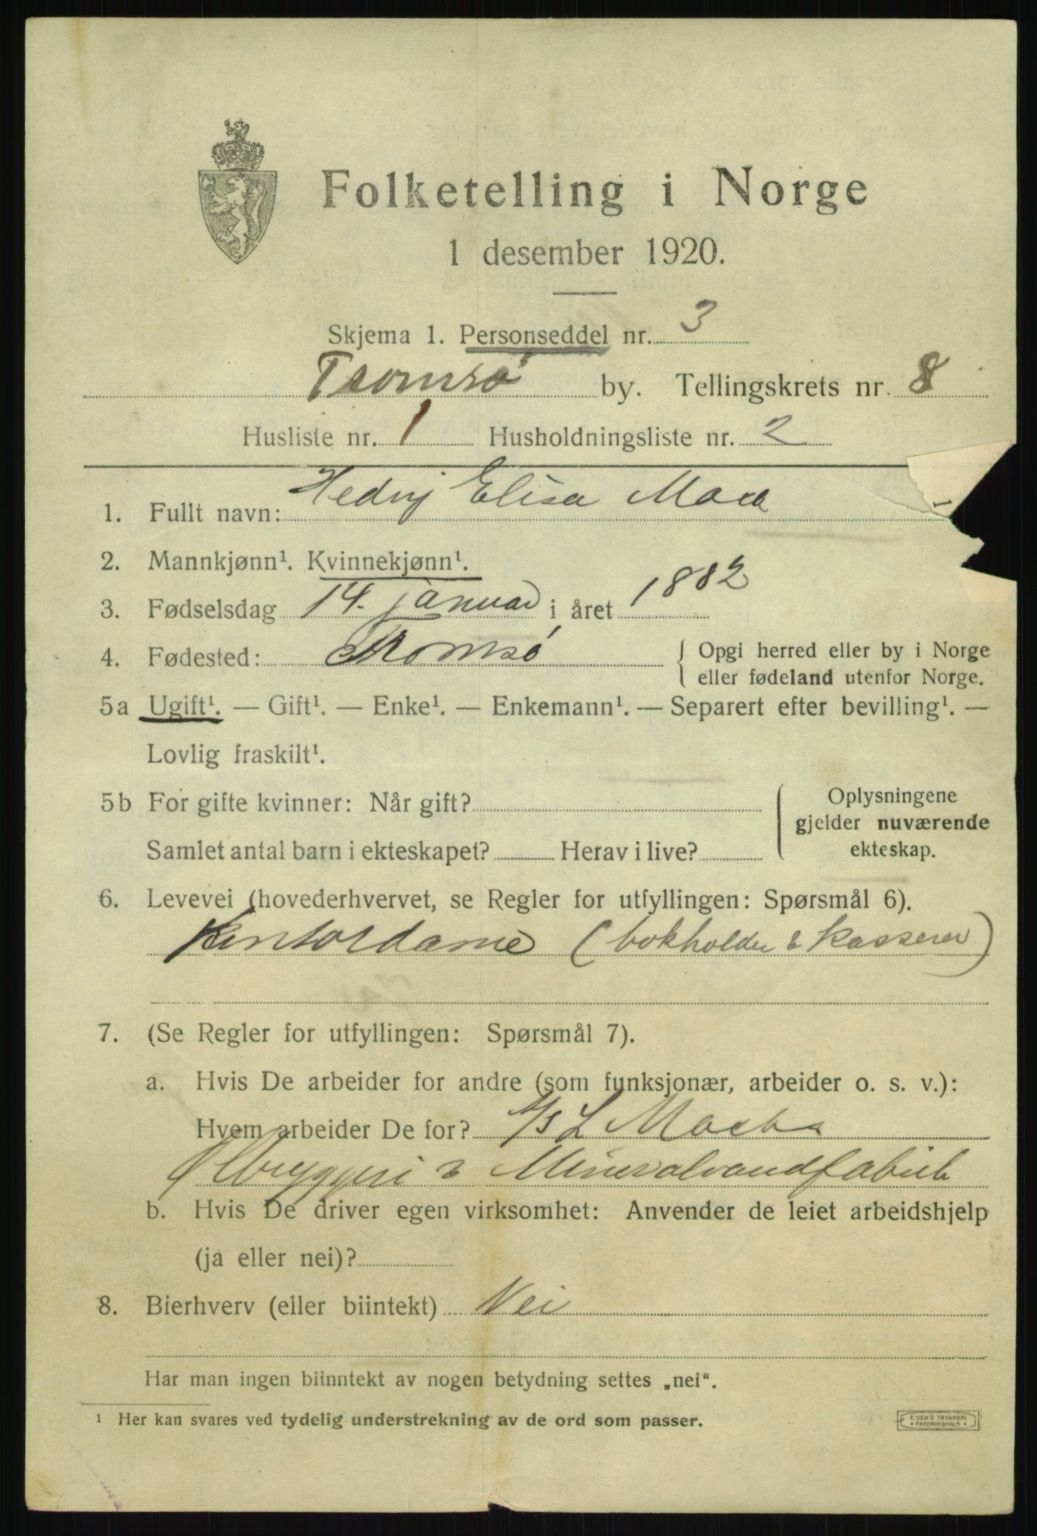 Folketelling i Norge
1 desember 1920.
Skjema 1. Personseddel nr. 3
Tromsø by. Tellingskrets nr. 8
Husliste nr. 1 Husholdningsliste nr. 2
1. Fullt navn: Hedvig Elisa Mack
2. Mannkjønn¹. Kvinnekjønn¹.
3. Fødselsdag 14. januar i året 1882
4. Fødested: Tromsø { Opgi herred eller by i Norge
eller fødeland utenfor Norge.
5a Ugift¹. — Gift¹. — Enke¹. — Enkemann¹. — Separert efter bevilling¹. —
Lovlig fraskilt¹.
5b For gifte kvinner: Når gift?
Samlet antal barn i ekteskapet? Herav i live?
Oplysningene
gjelder nuværende
ekteskap.
6. Levevei (hovederhvervet, se Regler for utfyllingen: Spørsmål 6).
Kontordame (bokholder & kasserer)
7. (Se Regler for utfyllingen: Spørsmål 7).
a. Hvis De arbeider for andre (som funksjonær, arbeider o. s. v.):
Hvem arbeider De for? A/S L Macks
Ølbryggeri & Mineralvandfabrik
b. Hvis De driver egen virksomhet: Anvender de leiet arbeidshjelp
(ja eller nei)?
8. Bierhverv (eller biintekt) Nei
Har man ingen biinntekt av nogen betydning settes „nei“.
¹ Her kan svares ved tydelig understrekning av de ord som passer.